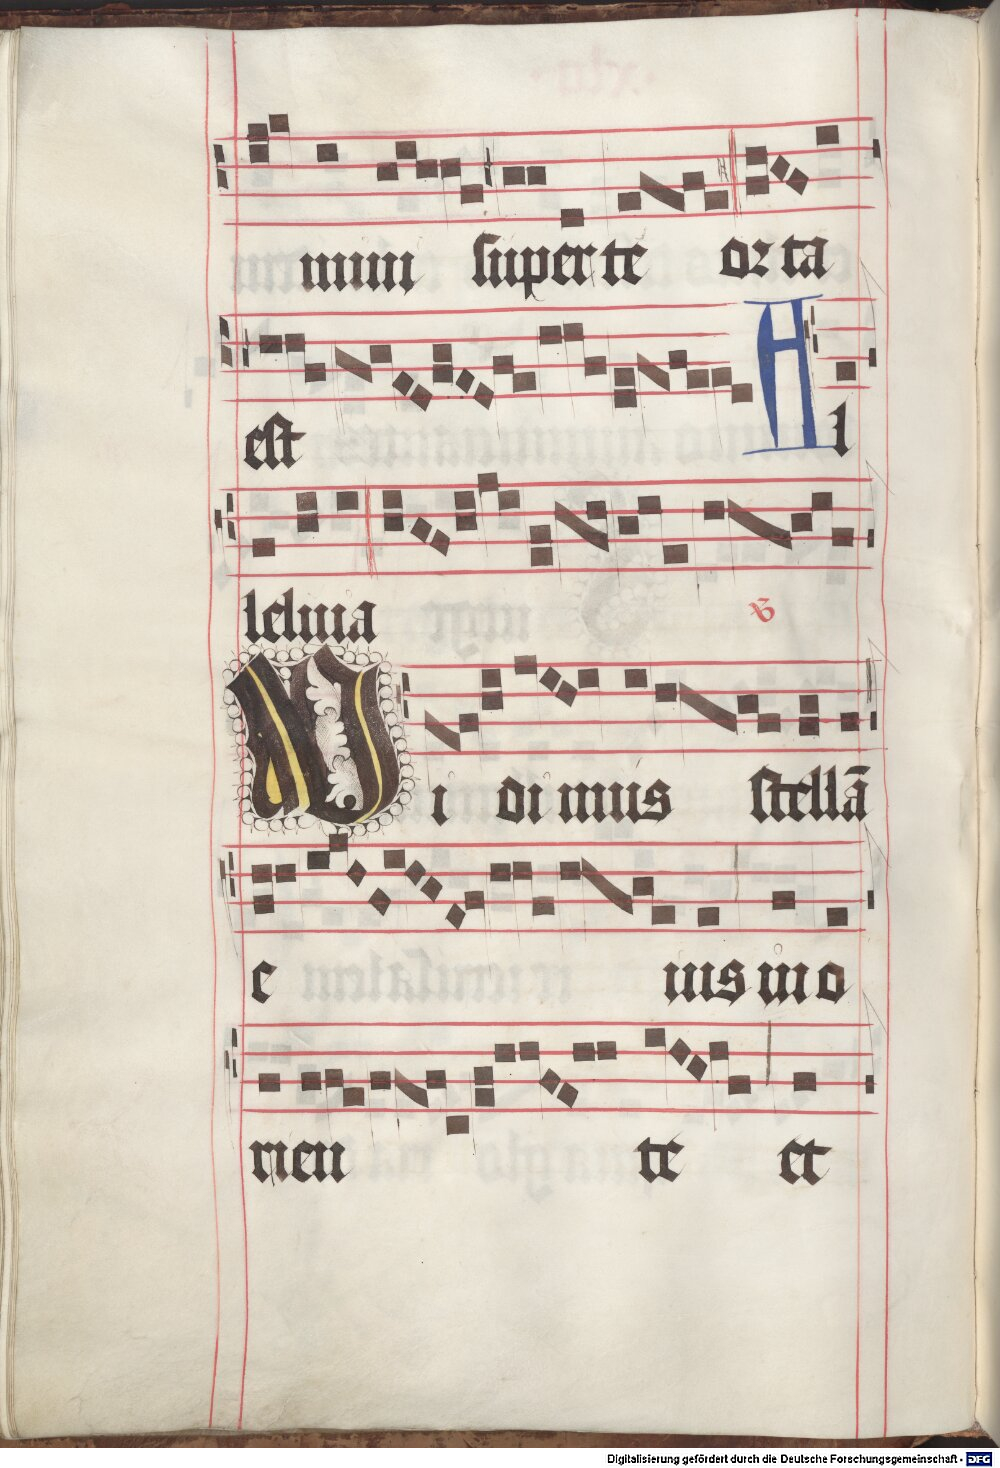 mini super te orta
est Al
leluia
℣
Vi dimus stellā
e ius in o
rien te et
Digitalisierung gefördert durch die Deutsche Forschungsgemeinschaft - DFG